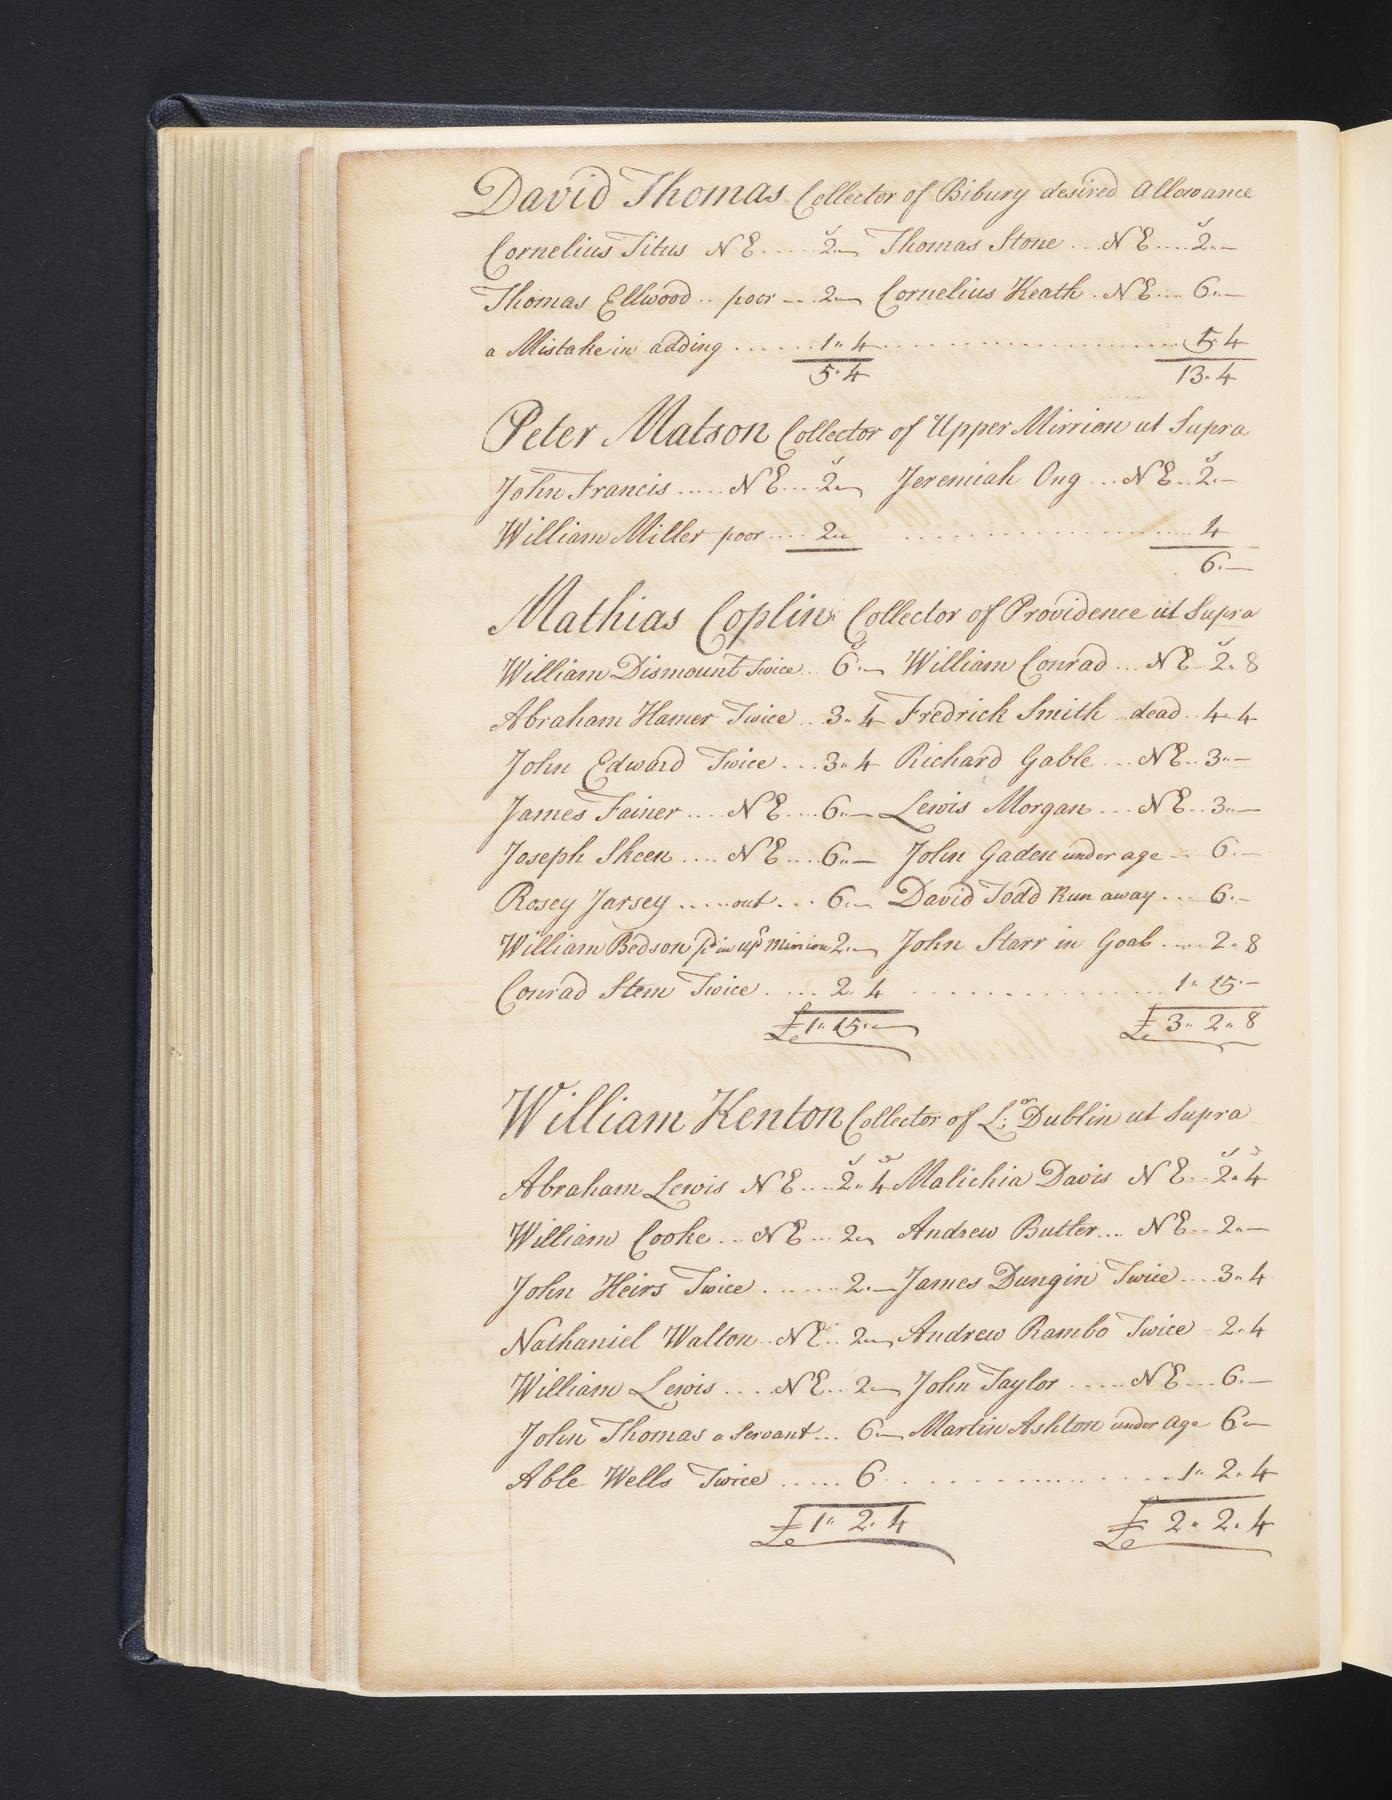 David Thomas Collector of Bibury desired Allowance
Cornelius Titus N E ..... 2"— Thomas Stone ... N E .... 2"—
Thomas Ellwood .. poor -- .. 2"— Cornelius Keath . N E ... 6"—
a Mistake in adding ...... 1" 4 .......................... 5" 4
5" 4 13" 4
Peter Matson Collector of Upper Mirrion ut Supra
John Francis ..... N E .... 2"— Jeremiah Ong ... N E .. 2"—
William Miller poor .... 2" ........................ 4
6"—
Mathias Coplin Collector of Providence ut Supra
William Dismount Twice .. 6"— William Conrad ... N E .. 2" 8
Abraham Hamer Twice .. 3" 4 Fredrick Smith .. dead .. 4" 4
John Edward Twice ... 3" 4 Richard Gable ... N E .. 3"—
James Fainer .... N E .... 6"— Lewis Morgan ... N E .. 3"—
Joseph Skeen .... N E .... 6"— John Gaden under age ... 6"—
Rosey Jarsey ..... out ... 6"— David Todd Run away .... 6"—
William Bedson pd in upr Mirrion 2"— John Starr in Goal .... 2" 8
Conrad Stem Twice .... 2" 4 .................. 1" 15"—
£ 1" 15"— £ 3" 2" 8
William Kenton Collector of Lor: Dublin ut Supra
Abraham Lewis N E ... 2" 4 Malichia Davis N E ... 2" 4
William Cooke .. N E ... 2"— Andrew Butler ... N E ... 2"—
John Heirs Twice ....... 2"— James Dungin Twice .... 3" 4
Nathaniel Walton .. N E .. 2"— Andrew Rambo Twice .. 2" 4
William Lewis .... N E .. 2"— John Taylor ..... N E ... 6"—
John Thomas a Servant ... 6"— Martin Ashton under age 6"—
Able Wells Twice ..... 6 .................. 1" 2" 4
£ 1" 2" 4 £ 2" 2" 4